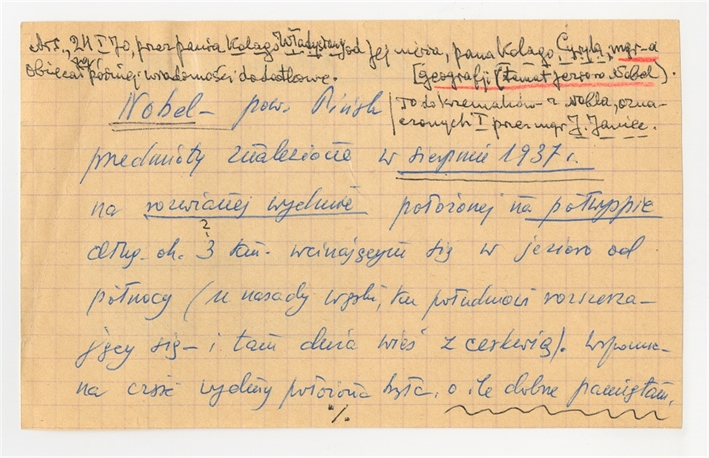 24 I 70, przez pania Kolago Władysławę od Jej męża, pana Kolago Cyryla, mgr-a
obiecał później wiadomości dodatkowe.
geografji (temat jezioro Nobel).
Nobel – pow. Pińsk
To do krzemaków z Nobla, ozna-
czonych I przez mgr J. Janiec.
przedmioty znalezione w sierpniu 1937 r.
na rozwianej wydmie położonej na półwyspie
?
dług. ok. 3 km. wcinającym się w jezioro od
północy (u nasady wąski, ku południowi rozszerza-
jący się – i tam duża wieś z cerkwią). Wspomnia-
na część wydmy położona była, o ile dobrze pamiętam,
%